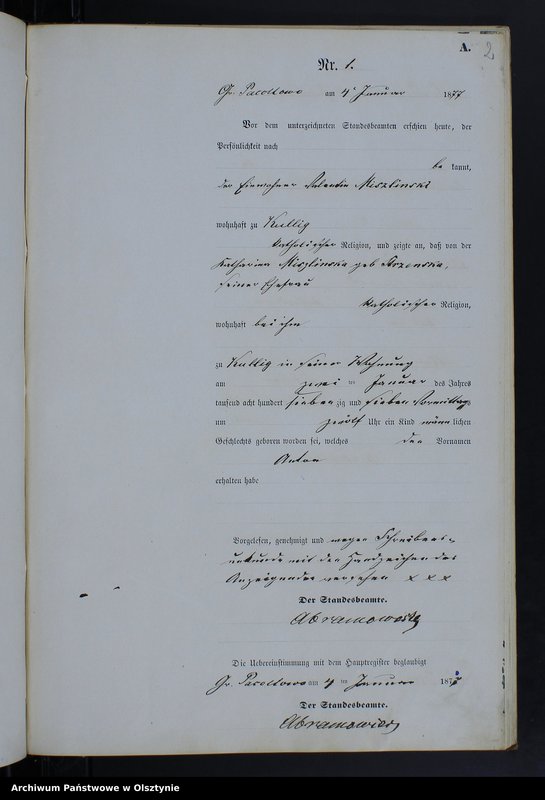 A.
2
Nr. 1.
Gr. Pacoltowo am 4ⁿ Januar 1877
Vor dem unterzeichneten Standesbeamten erschien heute, der
Persönlichkeit nach
be kannt,
der Einwohner Valentin Miszlinski
wohnhaft zu Kullig
katholischer Religion, und zeigte an, daß von der
Katharina Miszlinska geb
seiner Ehefrau
katholischer Religion,
wohnhaft bei ihm
zu Kullig in seiner Wohnung
am zwei ten Januar des Jahres
tausend acht hundert sieben zig und sieben Vormittags
um zwölf Uhr ein Kind männ lichen
Geschlechts geboren worden sei, welches den Vornamen
Anton
erhalten habe
Vorgelesen, genehmigt und wegen Schreibens-
unkunde mit den Handzeichen des
Anzeigenden versehen x x x
Der Standesbeamte.
Abramowski
Die Uebereinstimmung mit dem Hauptregister beglaubigt
Gr. Pacoltowo am 4 ten Januar 187
Der Standesbeamte.
Archiwum Państwowe w Olsztynie